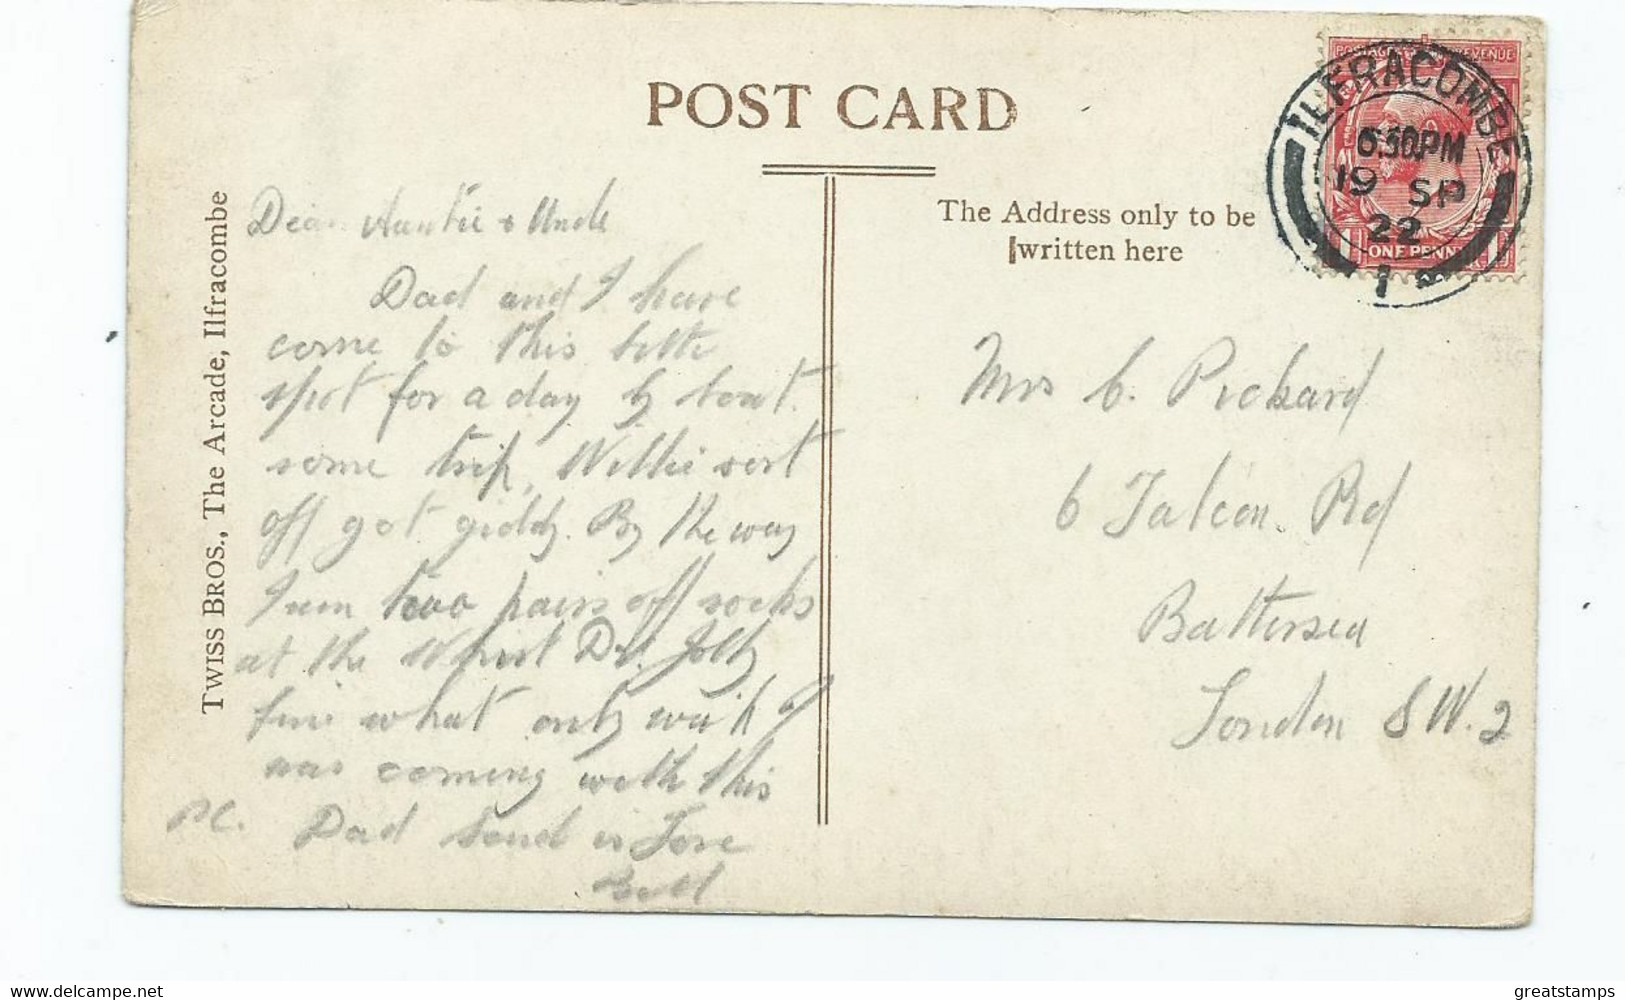 POST CARD
TWISS BROS., The Arcade, Ilfracombe
The Address only to be
written here
POSTAGE REVENUE
ONE PENNY
ILFRACOMBE
6.30PM
19 SP
22
Dear Auntie & Uncle
Dad and I have
come to this little
spot for a day by boat.
some trip, Willie sort
off got giddy. By the way
I won two pairs off socks
at the Whist Dr. Jolly
fine what only wait I
was coming with this
PC. Dad send is Love
Mrs C. Pickard
6 Falcon Rd
Battersea
London SW.2
delcampe.net
greatstamps